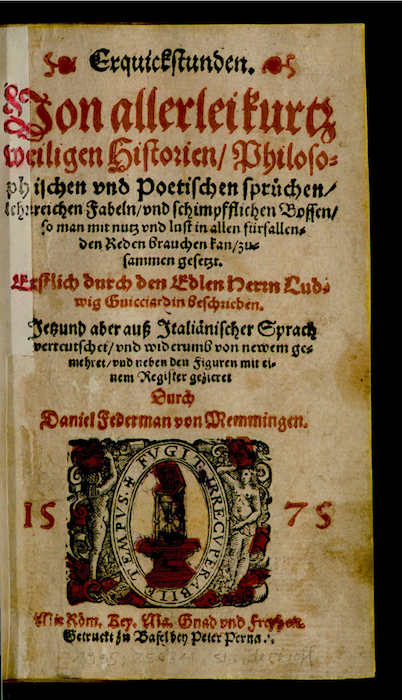 Erquickstunden.
Von allerlei kurtz
weiligen Historien/ Philoso-
phischen vnd Poetischen sprüchen/
lehrreichen Fabeln/vnd schimpfflichen Bossen/
so man mit nutz vnd lust in allen fürfallen-
den Reden brauchen kan/zu-
sammen gesetzt.
Erstlich durch den Edlen Herrn Lud-
wig Guicciardin beschrieben.
Jetzund aber auß Italiänischer Sprach
verteutschet/vnd widerumb von newem ge-
mehret/vnd neben den Figuren mit ei-
nem Register gezieret
Durch
Daniel Federman von Memmingen.
FVGIT IRRECVPERABILE TEMPVS
15 75
Mit Röm. Key. Ma. Gnad vnd Freyheit.
Getruckt zu Basel bey Peter Perna.